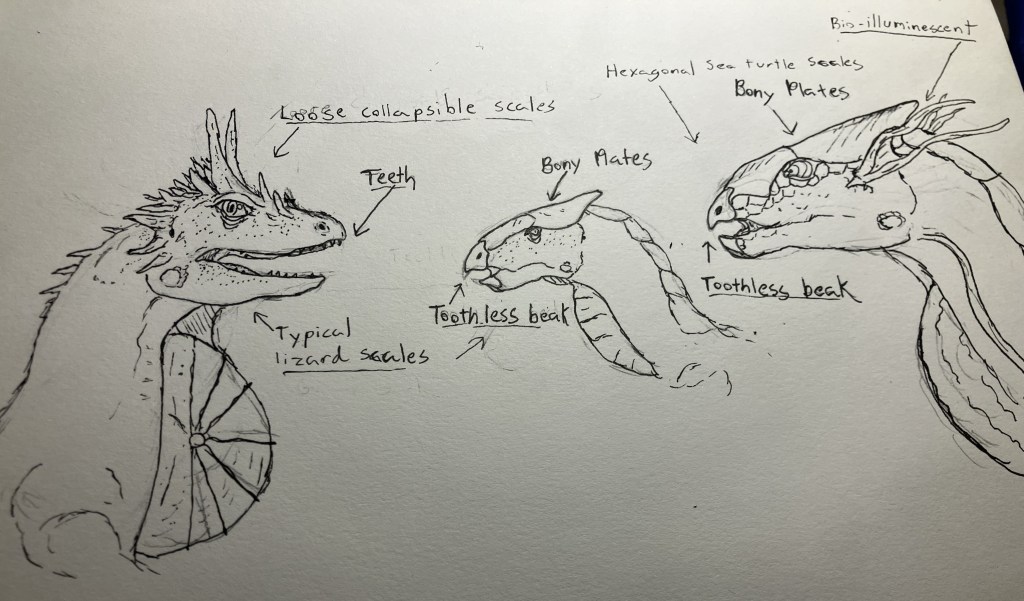 Bio-illuminescent
Hexagonal Sea turtle scales
Bony Plates
Loose collapsible scales
Teeth
Bony Plates
Toothless beak
Toothless beak
Typical
lizard scales